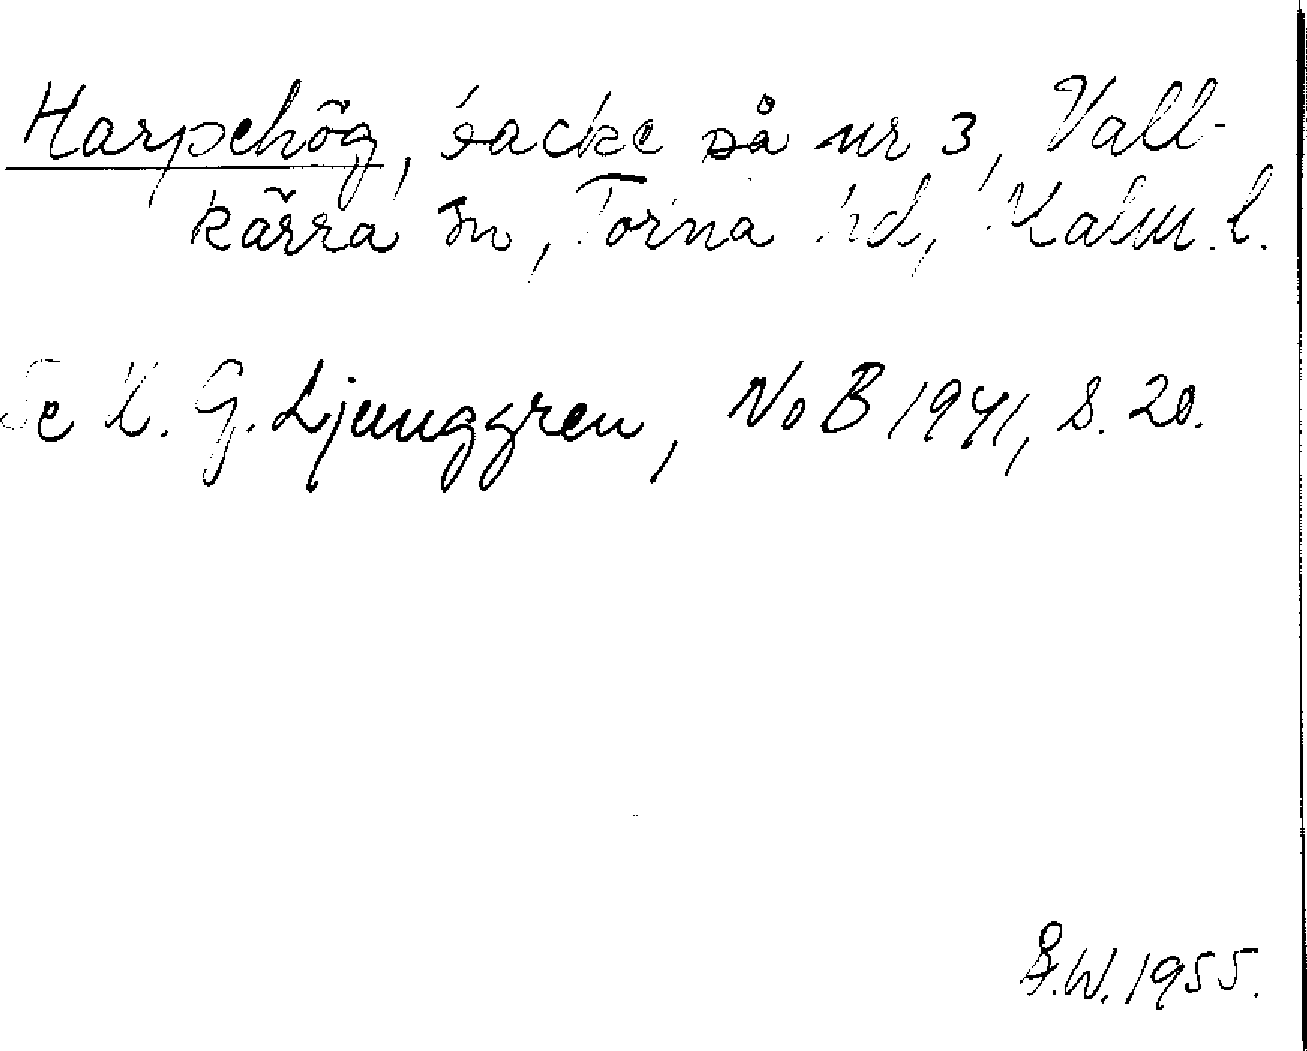 Harpehög, backe på nr 3, Vall-
kärra sn, Torna hd, Malm. l.
Se K. G. Ljunggren, NoB 1941, s. 20.
S.W. 1955.